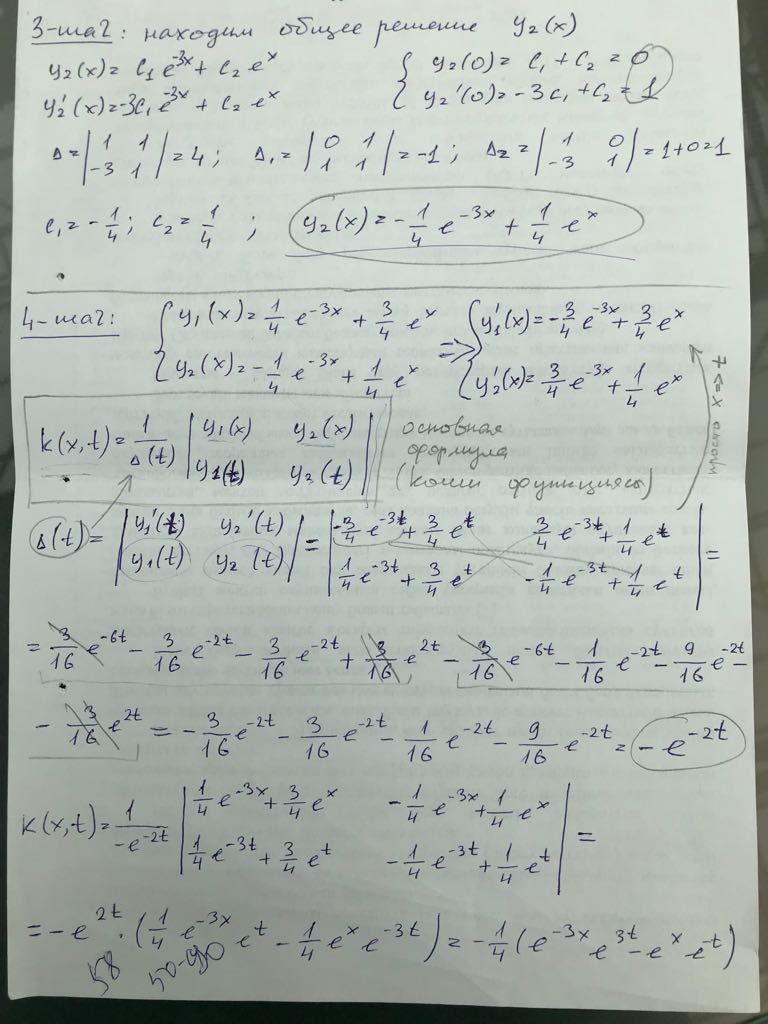 3-шаг: находим общее решение y₂(x)
y₂(x) = c₁e⁻³ˣ + c₂eˣ { y₂(0) = c₁ + c₂ = 0
y₂'(x) = -3c₁e⁻³ˣ + c₂eˣ y₂'(0) = -3c₁ + c₂ = 1
Δ = |1 1; -3 1| = 4; Δ₁ = |0 1; 1 1| = -1; Δ₂ = |1 0; -3 1| = 1+0=1
c₁ = -1/4; c₂ = 1/4; y₂(x) = -1/4 e⁻³ˣ + 1/4 eˣ
4-шаг: { y₁(x) = 1/4 e⁻³ˣ + 3/4 eˣ ⇒ { y₁'(x) = -3/4 e⁻³ˣ + 3/4 eˣ
y₂(x) = -1/4 e⁻³ˣ + 1/4 eˣ y₂'(x) = 3/4 e⁻³ˣ + 1/4 eˣ
K(x,t) = 1/Δ(t) |y₁(x) y₂(x); y₁(t) y₂(t)| основная формула (Коши функциясы)
просто x => t
Δ(t) = |y₁'(t) y₂'(t); y₁(t) y₂(t)| = |-3/4 e⁻³ᵗ + 3/4 eᵗ 3/4 e⁻³ᵗ + 1/4 eᵗ; 1/4 e⁻³ᵗ + 3/4 eᵗ -1/4 e⁻³ᵗ + 1/4 eᵗ| =
= 3/16 e⁻⁶ᵗ - 3/16 e⁻²ᵗ - 3/16 e⁻²ᵗ + 3/16 e²ᵗ - 3/16 e⁻⁶ᵗ - 1/16 e⁻²ᵗ - 9/16 e⁻²ᵗ -
- 3/16 e²ᵗ = -3/16 e⁻²ᵗ - 3/16 e⁻²ᵗ - 1/16 e⁻²ᵗ - 9/16 e⁻²ᵗ = -e⁻²ᵗ
K(x,t) = 1/-e⁻²ᵗ |1/4 e⁻³ˣ + 3/4 eˣ -1/4 e⁻³ˣ + 1/4 eˣ; 1/4 e⁻³ᵗ + 3/4 eᵗ -1/4 e⁻³ᵗ + 1/4 eᵗ| =
= -e²ᵗ · (1/4 e⁻³ˣ eᵗ - 1/4 eˣ e⁻³ᵗ) = -1/4 (e⁻³ˣ e³ᵗ - eˣ e⁻ᵗ)
58 50-90